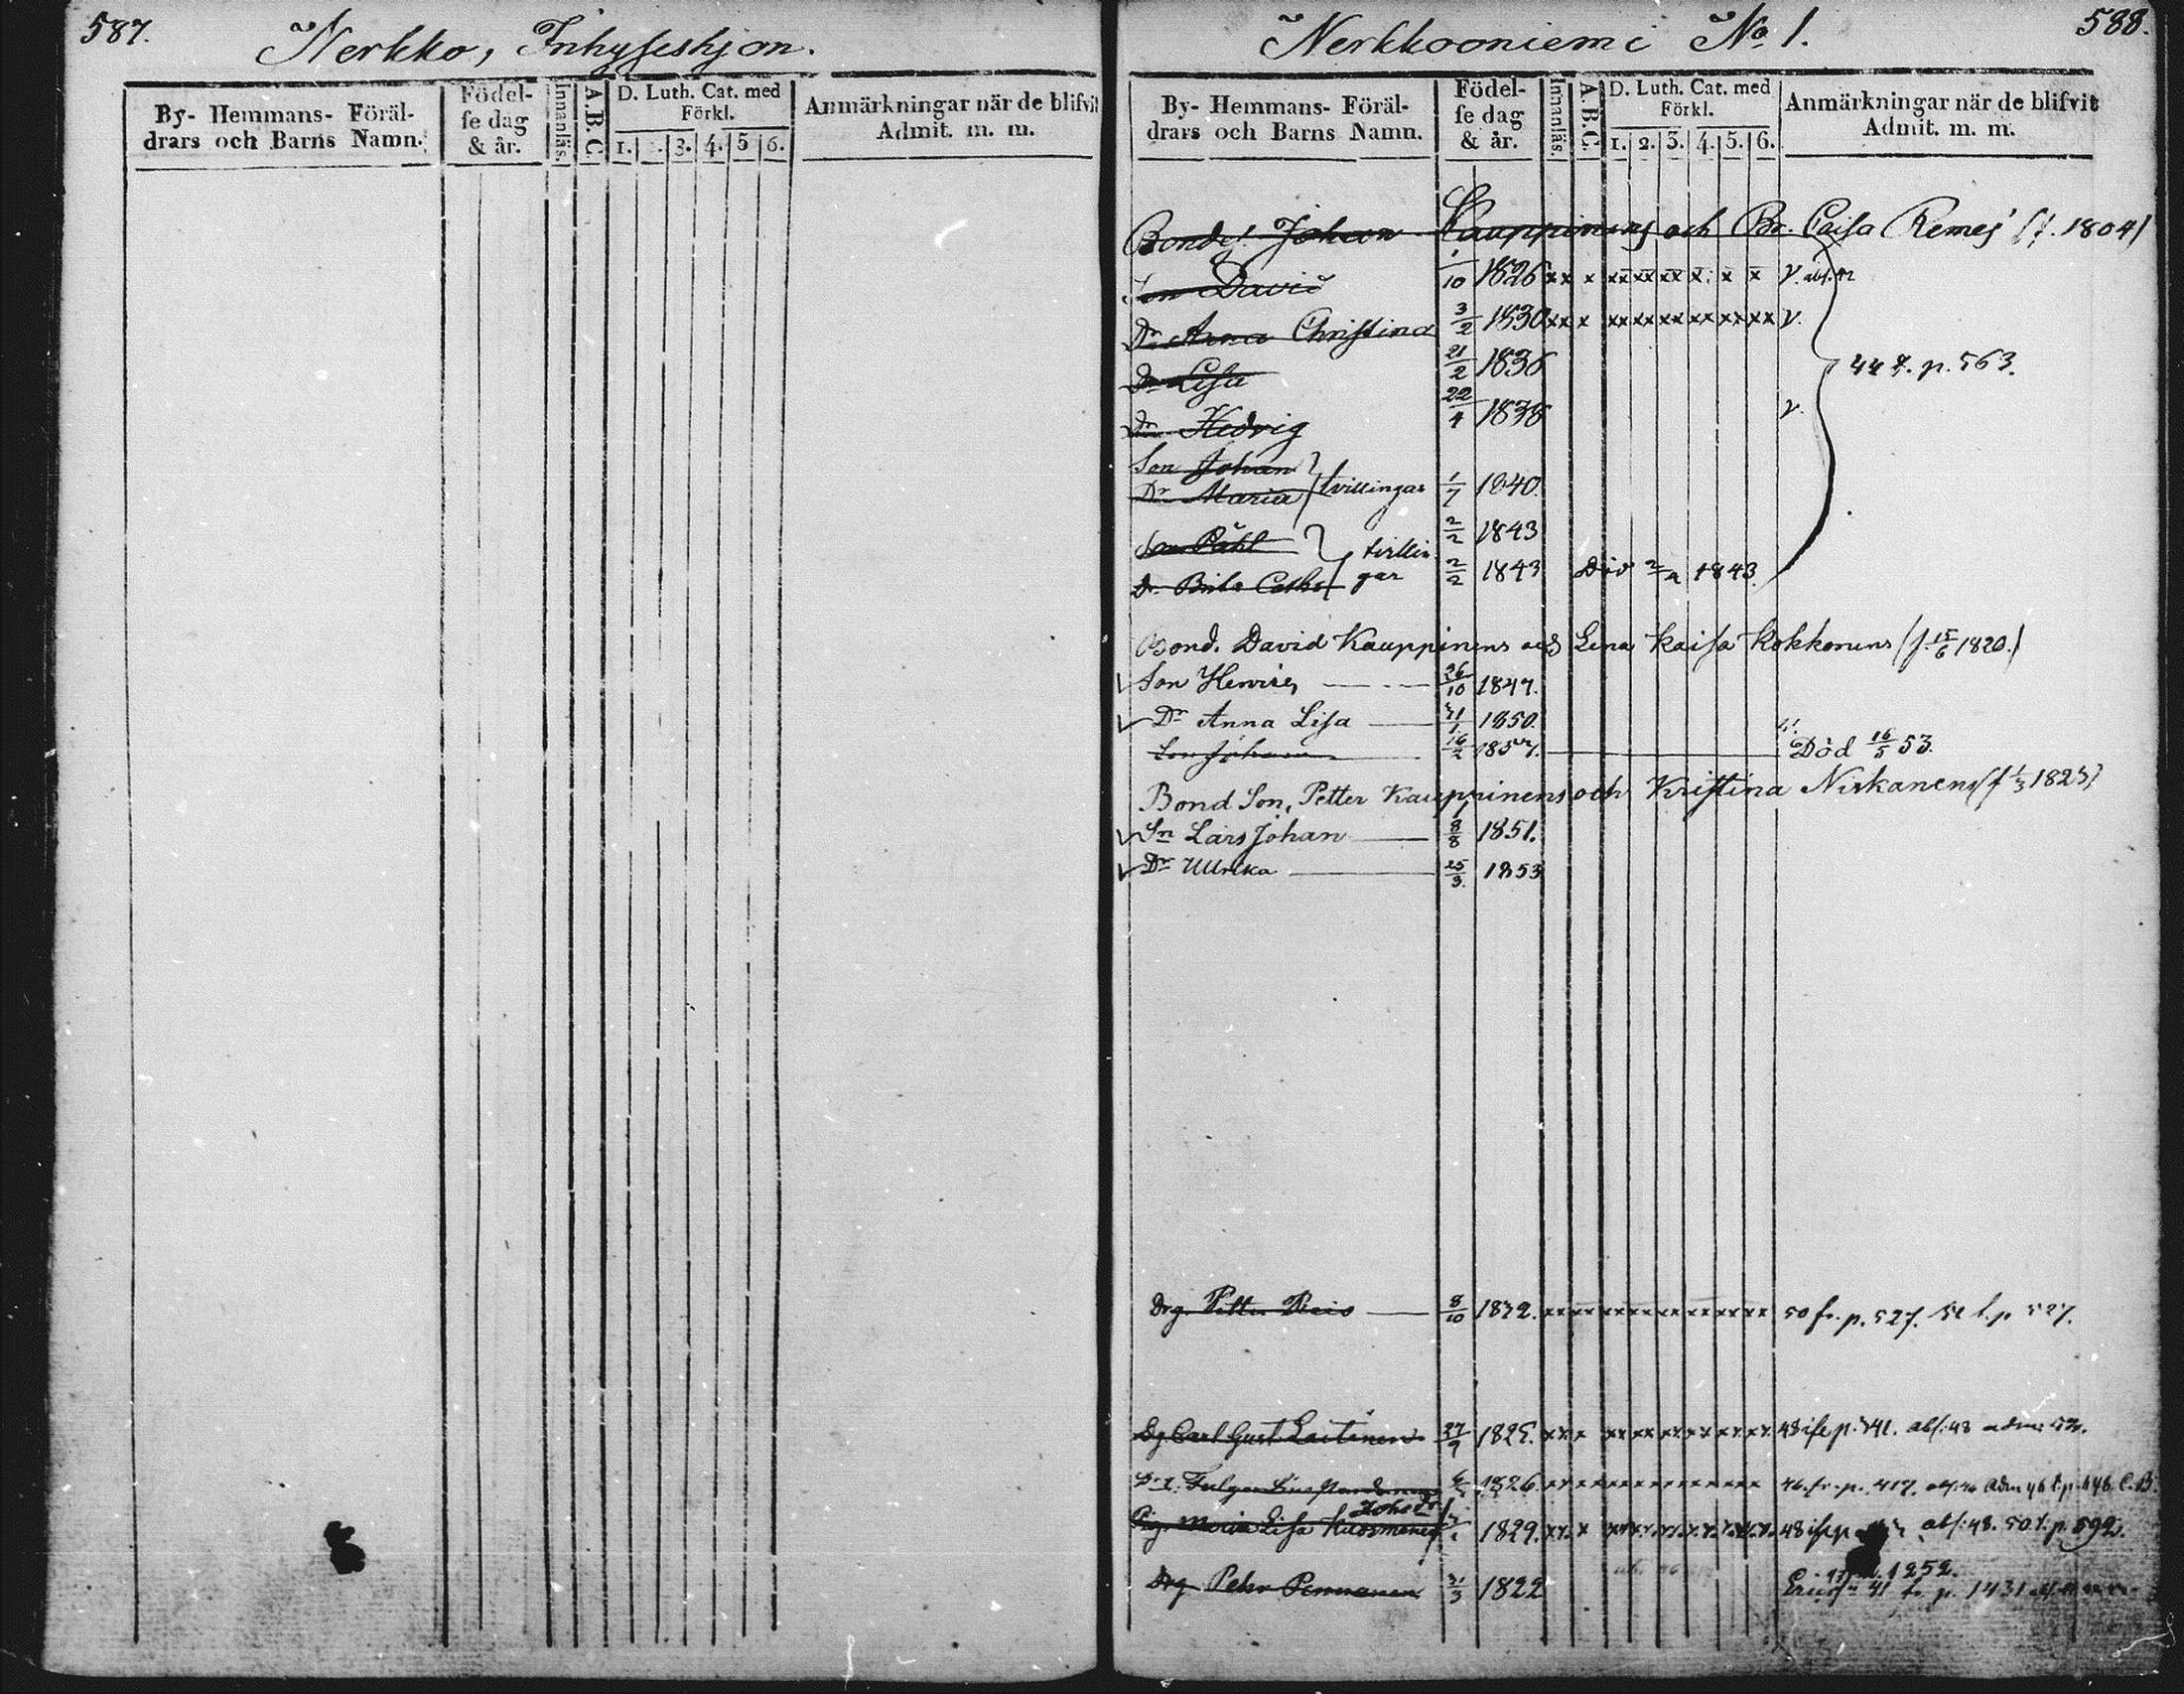 587.
Nerkko, Inhyseshjon.
By- Hemmans- Föräl-
drars och Barns Namn.
Födel-
se dag
& år.
Innanläs.
A.B.C.
D. Luth. Cat. med
Förkl.
1. 2. 3. 4. 5 6.
Anmärkningar när de blifvit
Admit. m. m.
588.
Nerkkooniemi No 1.
By- Hemmans- Föräl-
drars och Barns Namn.
Födel-
se dag
& år.
Innanläs.
A.B.C.
D. Luth. Cat. med
Förkl.
1. 2. 3. 4. 5. 6.
Anmärkningar när de blifvit
Admit. m. m.
Bondes Johan Kauppinens och Br. Caisa Remes (f. 1804)
Son David 1/10 1826 xx x xx xx xx x x x v.
Dr Anna Christina 3/2 1830 xx x xx xx xx xx xx xx v.
Dr Lisa 21/2 1836
44 t. p. 563.
Dr Hedvig 22/4 1838 v.
Son Johan
Dr Maria tvillingar 1/7 1840.
Son Påhl 2/2 1843
tvillin-
Dr Brita Catha gar 2/2 1843 Död 2/2 1843.
Bond. David Kauppinens och Lena Kaisa Kokkonens (f 15/6 1820.)
Son Henric 26/10 1847.
Dr Anna Lisa 31/1 1850.
Son Johan 16/2 185 Död 16/5 53.
Bond Son, Petter Kauppinens och Kristina Nirkanens (f 1/3 1823)
Sn Lars Johan 8/8 1851.
Dr Ullrika 25/3. 1853
Drg. Petter Reis 8/10 1832. xx xx xx xx xx xx xx xx 50 fr. p. 527. t. p. 527.
Dg Carl Gust Laitinen 27/9 1825. xx x xx xx xx xx xx xx 48 ifr p. 341. abs: 48
1826. 46. fr. p. 417. Adm 46 t. p. 648 C.B.
Johs Dr
Pig. Maria Lisa Kuosmanen 1829. xx x 48 ifr p abs: 48. 50 t. p. 592.
Drg Pehr Pennanen 31/3 1822
1252.
41 fr p. 1431